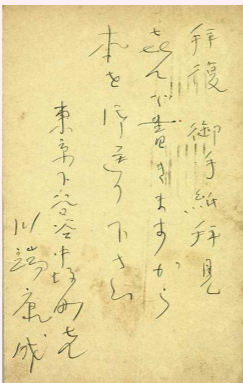 拝復 御手紙拝見
喜んで書きますから
本を御送り下さい
東京下谷谷中坂町
川端康成